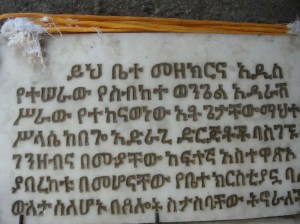 ይህ ቤተ መዘክርና አዲስ
የተሠራው የስብከተ ወንጌል አዳራሽ
ሥራው የተከናወነው እት ጌታቸው ማህተ
ሥላሴ ከበጎ አድራጊ ድርጅቶች ባስገኙ
ገንዘብና በሙያቸው ከፍተኛ አስተዋጽኦ
ያበረከቱ በመሆናቸው የቤተ ክርስቲያኗ ባ
ውለታ ስለሆኑ በጸሎት ስታስባቸው ትኖራለች